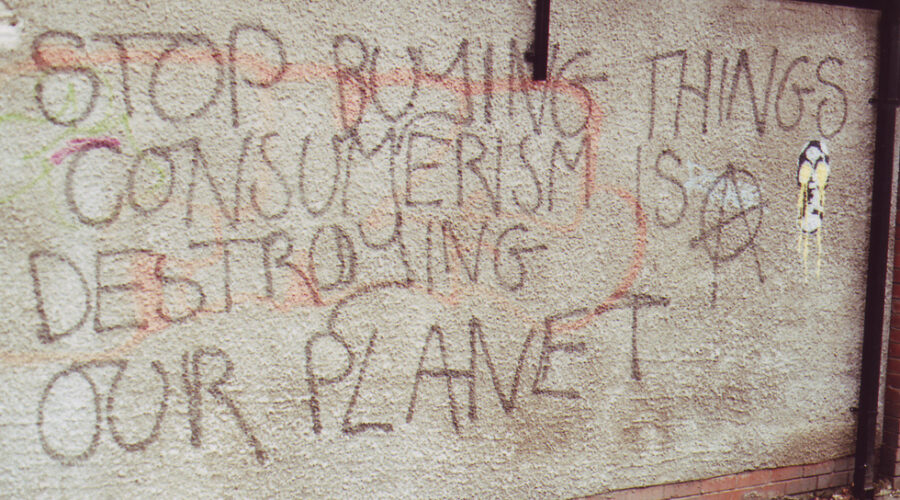 STOP BUYING THINGS
CONSUMERISM IS
DESTROYING
OUR PLANET